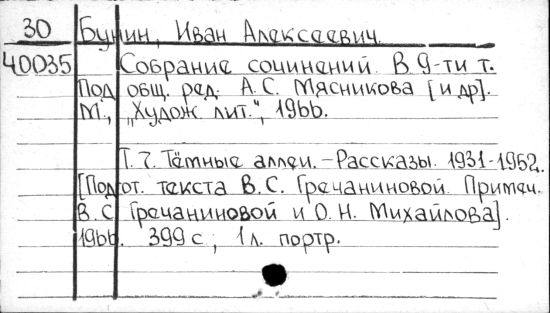 30 Бунин, Иван Алексеевич.
40035 Собрание сочинений. В 9-ти т.
Под общ. ред. А.С. Мясникова [и др].
М., „Худож. лит.“, 1966.
Т. 7. Тёмные аллеи. - Рассказы. 1931-1952.
[Подгот. текста В.С. Гречаниновой. Примеч.
В.С. Гречаниновой и О.Н. Михайлова].
1966. 399 с; 1 л. портр.